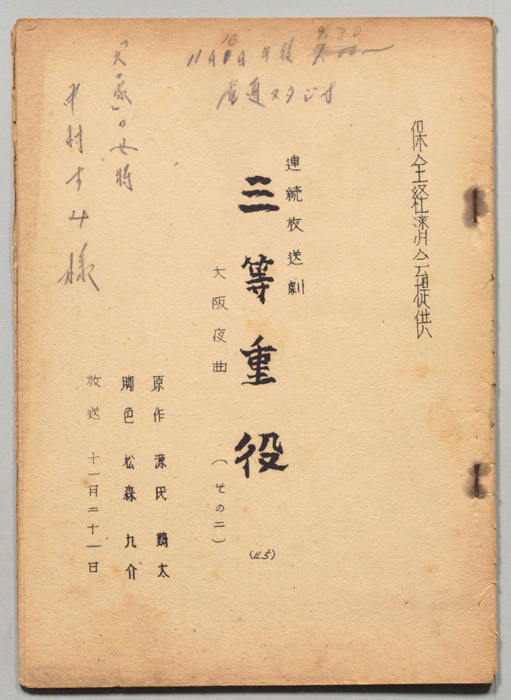 保全経済会提供
連続放送劇
三等重役
大阪夜曲
(その二)
(115)
原作 源氏鶏太
脚色 松森九介
放送 十一月二十一日
11月
午後
9.30
スタジオ
の女将
中村すみ様